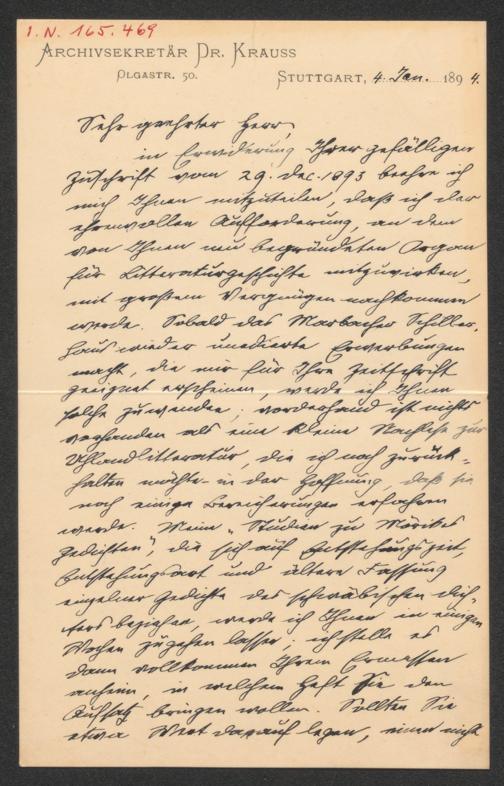 I. N. 165.469
ARCHIVSEKRETÄR DR. KRAUSS
OLGASTR. 50.
STUTTGART, 4. Jan. 1894.
Sehr geehrter Herr,
in Erwiderung Ihrer gefälligen
Zuschrift vom 29. Dec. 1893 beehre ich
mich Ihnen mitzuteilen, daß ich der
ehrenvollen Aufforderung, an dem
von Ihnen neu begründeten Organ
für Litteraturgeschichte mitzuwirken,
mit großem Vergnügen nachkommen
werde. Sobald das Marbacher Schiller-
haus wieder unedierte Erwerbungen
macht, die mir für Ihre Zeitschrift
geeignet erscheinen, werde ich Ihnen
solche zuwenden; vorderhand ist nichts
vorhanden als eine kleine Nachlese zur
Uhlandlitteratur, die ich noch zurück-
halten möchte in der Hoffnung, daß sie
noch einige Bereicherungen erfahren
werde. Meine „Studien zu Mörikes
Gedichten", die sich auf Entstehungszeit
Entstehungsart und ältere Fassung
einzelner Gedichte des schwäbischen Dich-
ters beziehen, werde ich Ihnen in einigen
Wochen zugehen lassen; ich stelle es
dann vollkommen Ihrem Ermessen
anheim, in welchem Heft Sie den
Aufsatz bringen wollen. Sollten Sie
etwa Wert darauf legen, einen nicht